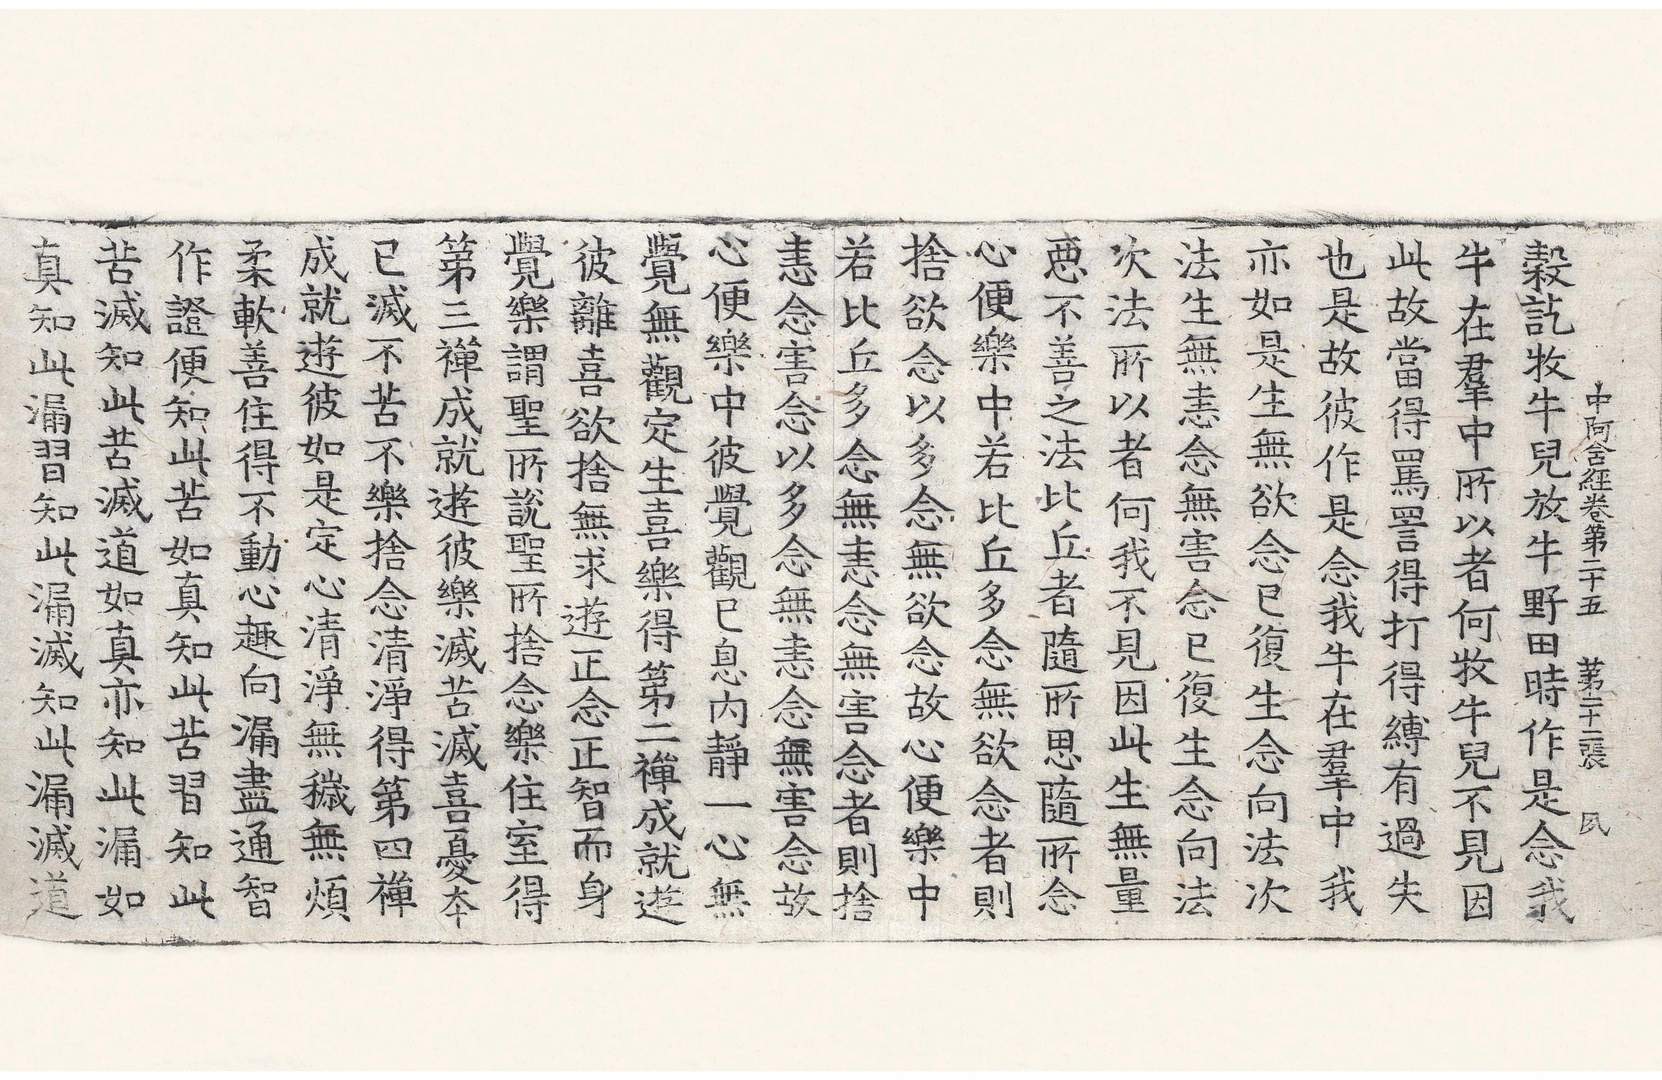 中阿含經卷第二十五　第二十二張　夙
穀訖牧牛兒放牛野田時作是念我
牛在羣中所以者何牧牛兒不見因
此故當得罵詈得打得縛有過失
也是故彼作是念我牛在羣中我
亦如是生無欲念已復生念向法次
法生無恚念無害念已復生念向法
次法所以者何我不見因此生無量
惡不善之法比丘者隨所思隨所念
心便樂中若比丘多念無欲念者則
捨欲念以多念無欲念故心便樂中
若比丘多念無恚念無害念者則捨
恚念害念以多念無恚念無害念故
心便樂中彼覺觀已息內靜一心無
覺無觀定生喜樂得第二禪成就遊
彼離喜欲捨無求遊正念正智而身
覺樂謂聖所說聖所捨念樂住室得
第三禪成就遊彼樂滅苦滅喜憂本
已滅不苦不樂捨念清淨得第四禪
成就遊彼如是定心清淨無穢無煩
柔軟善住得不動心趣向漏盡通智
作證便知此苦如真知此苦習知此
苦滅知此苦滅道如真亦知此漏如
真知此漏習知此漏滅知此漏滅道